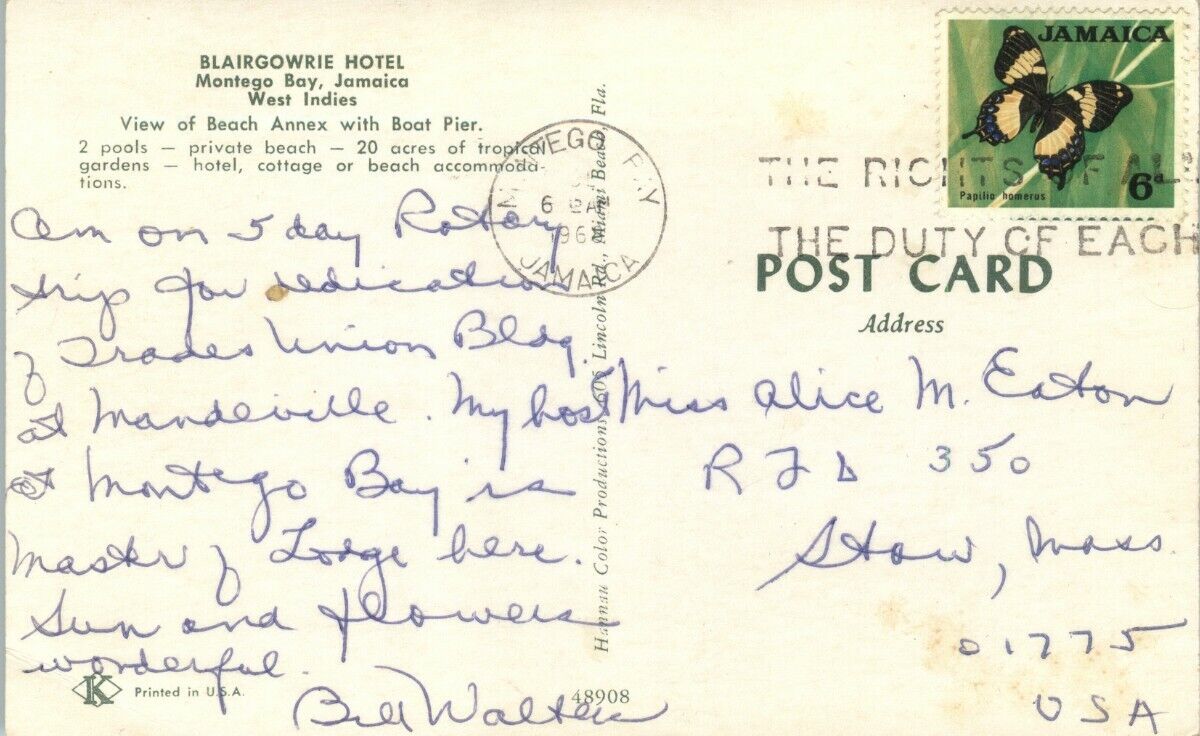 BLAIRGOWRIE HOTEL
Montego Bay, Jamaica
West Indies
View of Beach Annex with Boat Pier.
2 pools — private beach — 20 acres of tropical
gardens — hotel, cottage or beach accommoda-
tions.
Am on 5 day Rotary
trip for dedication
of Trades Union Bldg.
at Mandeville. My host
at Montego Bay is
Master of Lodge here.
Sun and flowers
wonderful.
Bill Walter
K
Printed in U.S.A.
48908
Hannau Color Productions, 605 Lincoln Rd., Miami Beach, Fla.
MONTEGO BAY
6
196
JAMAICA
THE RIGHTS OF ALL
THE DUTY OF EACH
JAMAICA
Papilio homerus
6d
POST CARD
Address
Miss Alice M. Eaton
RFD 350
Stow, Mass.
01775
USA